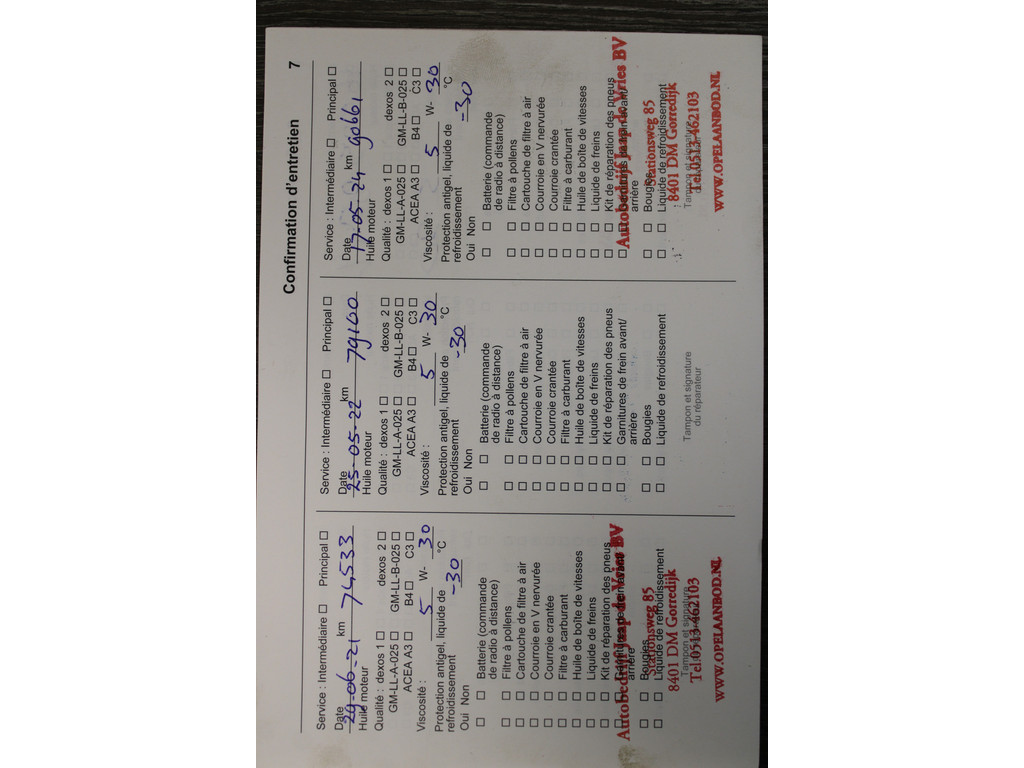 Confirmation d'entretien 7
Service : Intermédiaire □ Principal □
Date 29-06-21 km 74533
Huile moteur
Qualité : dexos 1 □ dexos 2 □
GM-LL-A-025 □ GM-LL-B-025 □
ACEA A3 □ B4 □ C3 □
Viscosité : 5 W- 30
Protection antigel, liquide de
refroidissement -30 °C
Oui Non
□ □ Batterie (commande
de radio à distance)
□ □ Filtre à pollens
□ □ Cartouche de filtre à air
□ □ Courroie en V nervurée
□ □ Courroie crantée
□ □ Filtre à carburant
□ □ Huile de boîte de vitesses
□ □ Liquide de freins
□ □ Kit de réparation des pneus
□ □ Garnitures de frein avant/
arrière
□ □ Bougies
□ □ Liquide de refroidissement
Tampon et signature
Autobedrijf Jaap de Vries BV
Stationsweg 85
8401 DM Gorredijk
Tel.0513-462103
WWW.OPELAANBOD.NL
Service : Intermédiaire □ Principal □
Date 25-05-22 km 79100
Huile moteur
Qualité : dexos 1 □ dexos 2 □
GM-LL-A-025 □ GM-LL-B-025 □
ACEA A3 □ B4 □ C3 □
Viscosité : 5 W- 30
Protection antigel, liquide de
refroidissement -30 °C
Oui Non
□ □ Batterie (commande
de radio à distance)
□ □ Filtre à pollens
□ □ Cartouche de filtre à air
□ □ Courroie en V nervurée
□ □ Courroie crantée
□ □ Filtre à carburant
□ □ Huile de boîte de vitesses
□ □ Liquide de freins
□ □ Kit de réparation des pneus
□ □ Garnitures de frein avant/
arrière
□ □ Bougies
□ □ Liquide de refroidissement
Tampon et signature
du réparateur
Service : Intermédiaire □ Principal □
Date 17-05-24 km 90661
Huile moteur
Qualité : dexos 1 □ dexos 2 □
GM-LL-A-025 □ GM-LL-B-025 □
ACEA A3 □ B4 □ C3 □
Viscosité : 5 W- 30
Protection antigel, liquide de
refroidissement -30 °C
Oui Non
□ □ Batterie (commande
de radio à distance)
□ □ Filtre à pollens
□ □ Cartouche de filtre à air
□ □ Courroie en V nervurée
□ □ Courroie crantée
□ □ Filtre à carburant
□ □ Huile de boîte de vitesses
□ □ Liquide de freins
□ □ Kit de réparation des pneus
□ □ Garnitures de frein avant/
arrière
□ □ Bougies
□ □ Liquide de refroidissement
Tampon et signature
Autobedrijf Jaap de Vries BV
Stationsweg 85
8401 DM Gorredijk
Tel.0513-462103
WWW.OPELAANBOD.NL